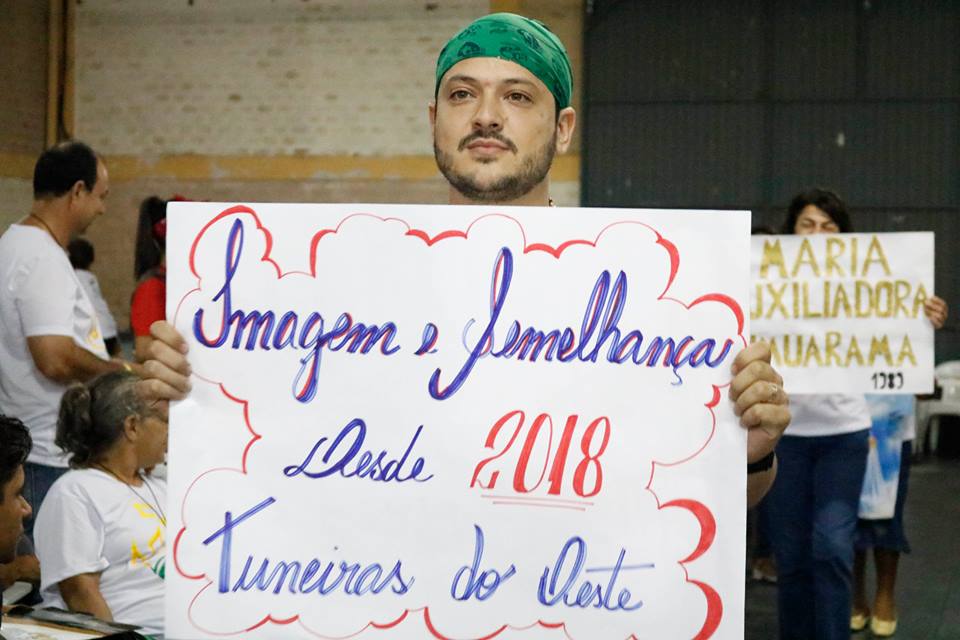 Imagem e Semelhança
Desde 2018
Tuneiras do Oeste
MARIA
AUXILIADORA
UMUARAMA
1989